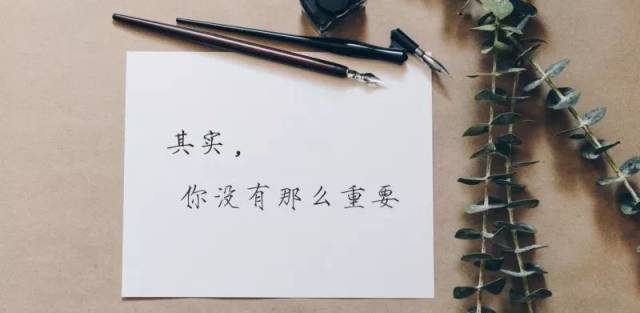 其实，
你没有那么重要